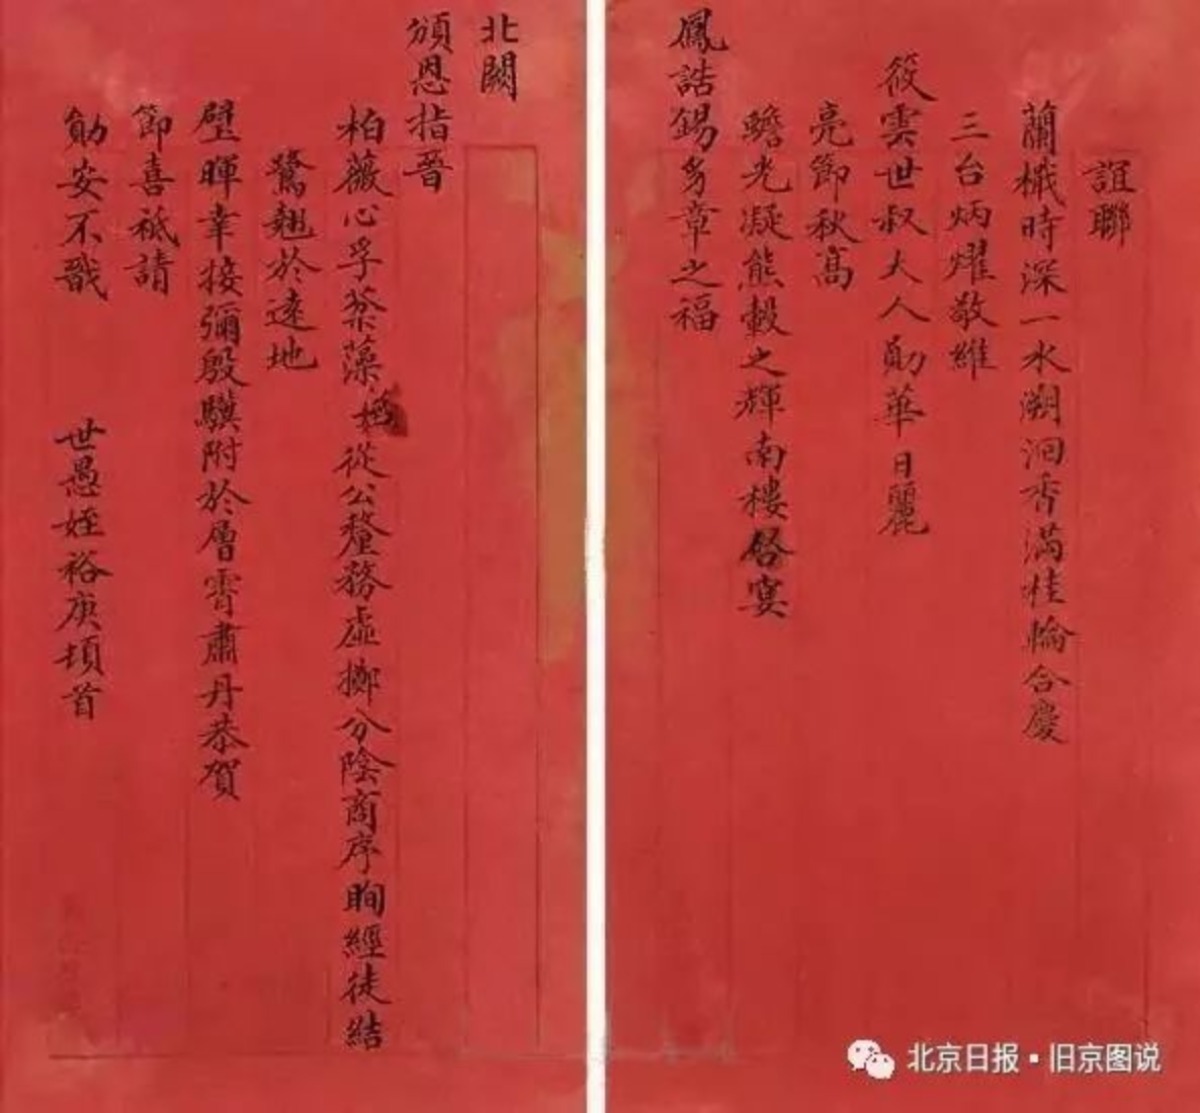 誼聯
蘭檝時深一水溯洄香滿桂輪合慶
三台炳燿敬維
筱雲世叔大人勛華日麗
亮節秋高
蟾光凝熊轂之輝南樓啓宴
鳳誥錫多章之福
北闕
頒恩指晉
柏薇心孚蔡藻 從公釐務虛擲分陰商序眴經徒結
鷺翹於遠地
璧暉幸接彌殷驥附於層霄肅丹恭賀
節喜祗請
勛安不戬
世愚姪裕庚頓首
北京日报·旧京图说